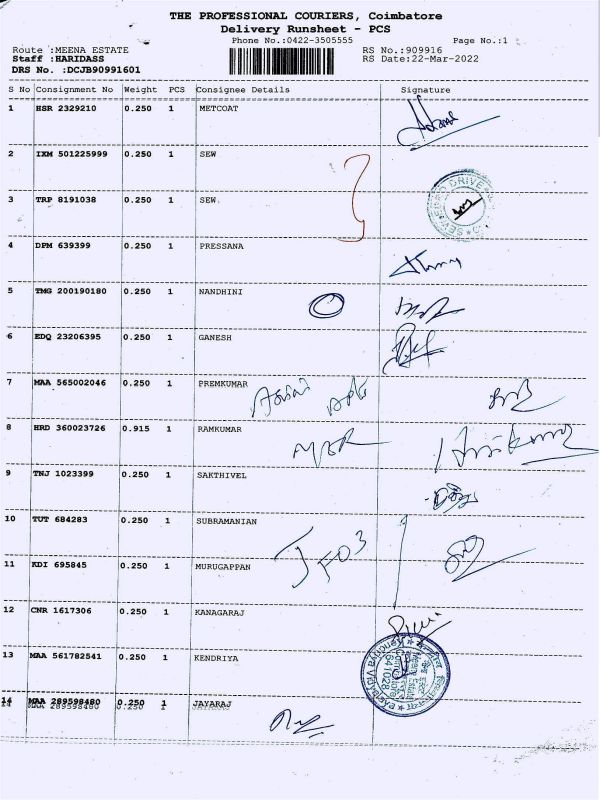 THE PROFESSIONAL COURIERS, Coimbatore
Delivery Runsheet - PCS
Phone No.:0422-3505555 Page No.:1
Route :MEENA ESTATE RS No.:909916
Staff :HARIDASS RS Date:22-Mar-2022
DRS No. :DCJB90991601
S No Consignment No Weight PCS Consignee Details Signature
1 HSR 2329210 0.250 1 METCOAT
2 IXM 501225999 0.250 1 SEW
3 TRP 8191038 0.250 1 SEW.
4 DPM 639399 0.250 1 PRESSANA
5 TMG 200190180 0.250 1 NANDHINI
6 EDQ 23206395 0.250 1 GANESH
7 MAA 565002046 0.250 1 PREMKUMAR
8 HRD 360023726 0.915 1 RAMKUMAR
9 TNJ 1023399 0.250 1 SAKTHIVEL
10 TUT 684283 0.250 1 SUBRAMANIAN
11 KDI 695845 0.250 1 MURUGAPPAN
12 CNR 1617306 0.250 1 KANAGARAJ
13 MAA 561782541 0.250 1 KENDRIYA
641028
14 MAA 289598480 0.250 1 JAYARAJ